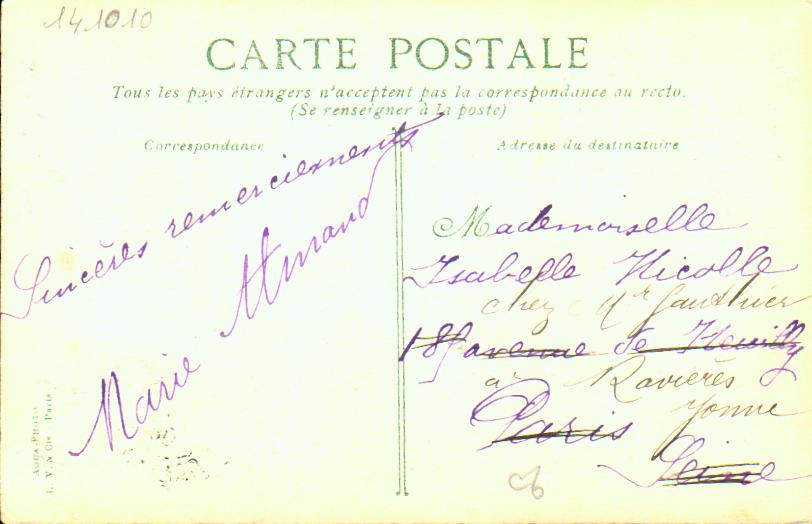 141010
CARTE POSTALE
Tous les pays étrangers n'acceptent pas la correspondance au recto.
(Se renseigner à la poste)
Correspondance
Adresse du destinataire
Sincères remerciements
Marie
Mademoiselle
Isabelle Nicolle
chez Mr Gauthier
avenue de Neuilly
à Ravières
Paris Yonne
Seine
AQUA-PHOTO
L. V. & Cie Paris